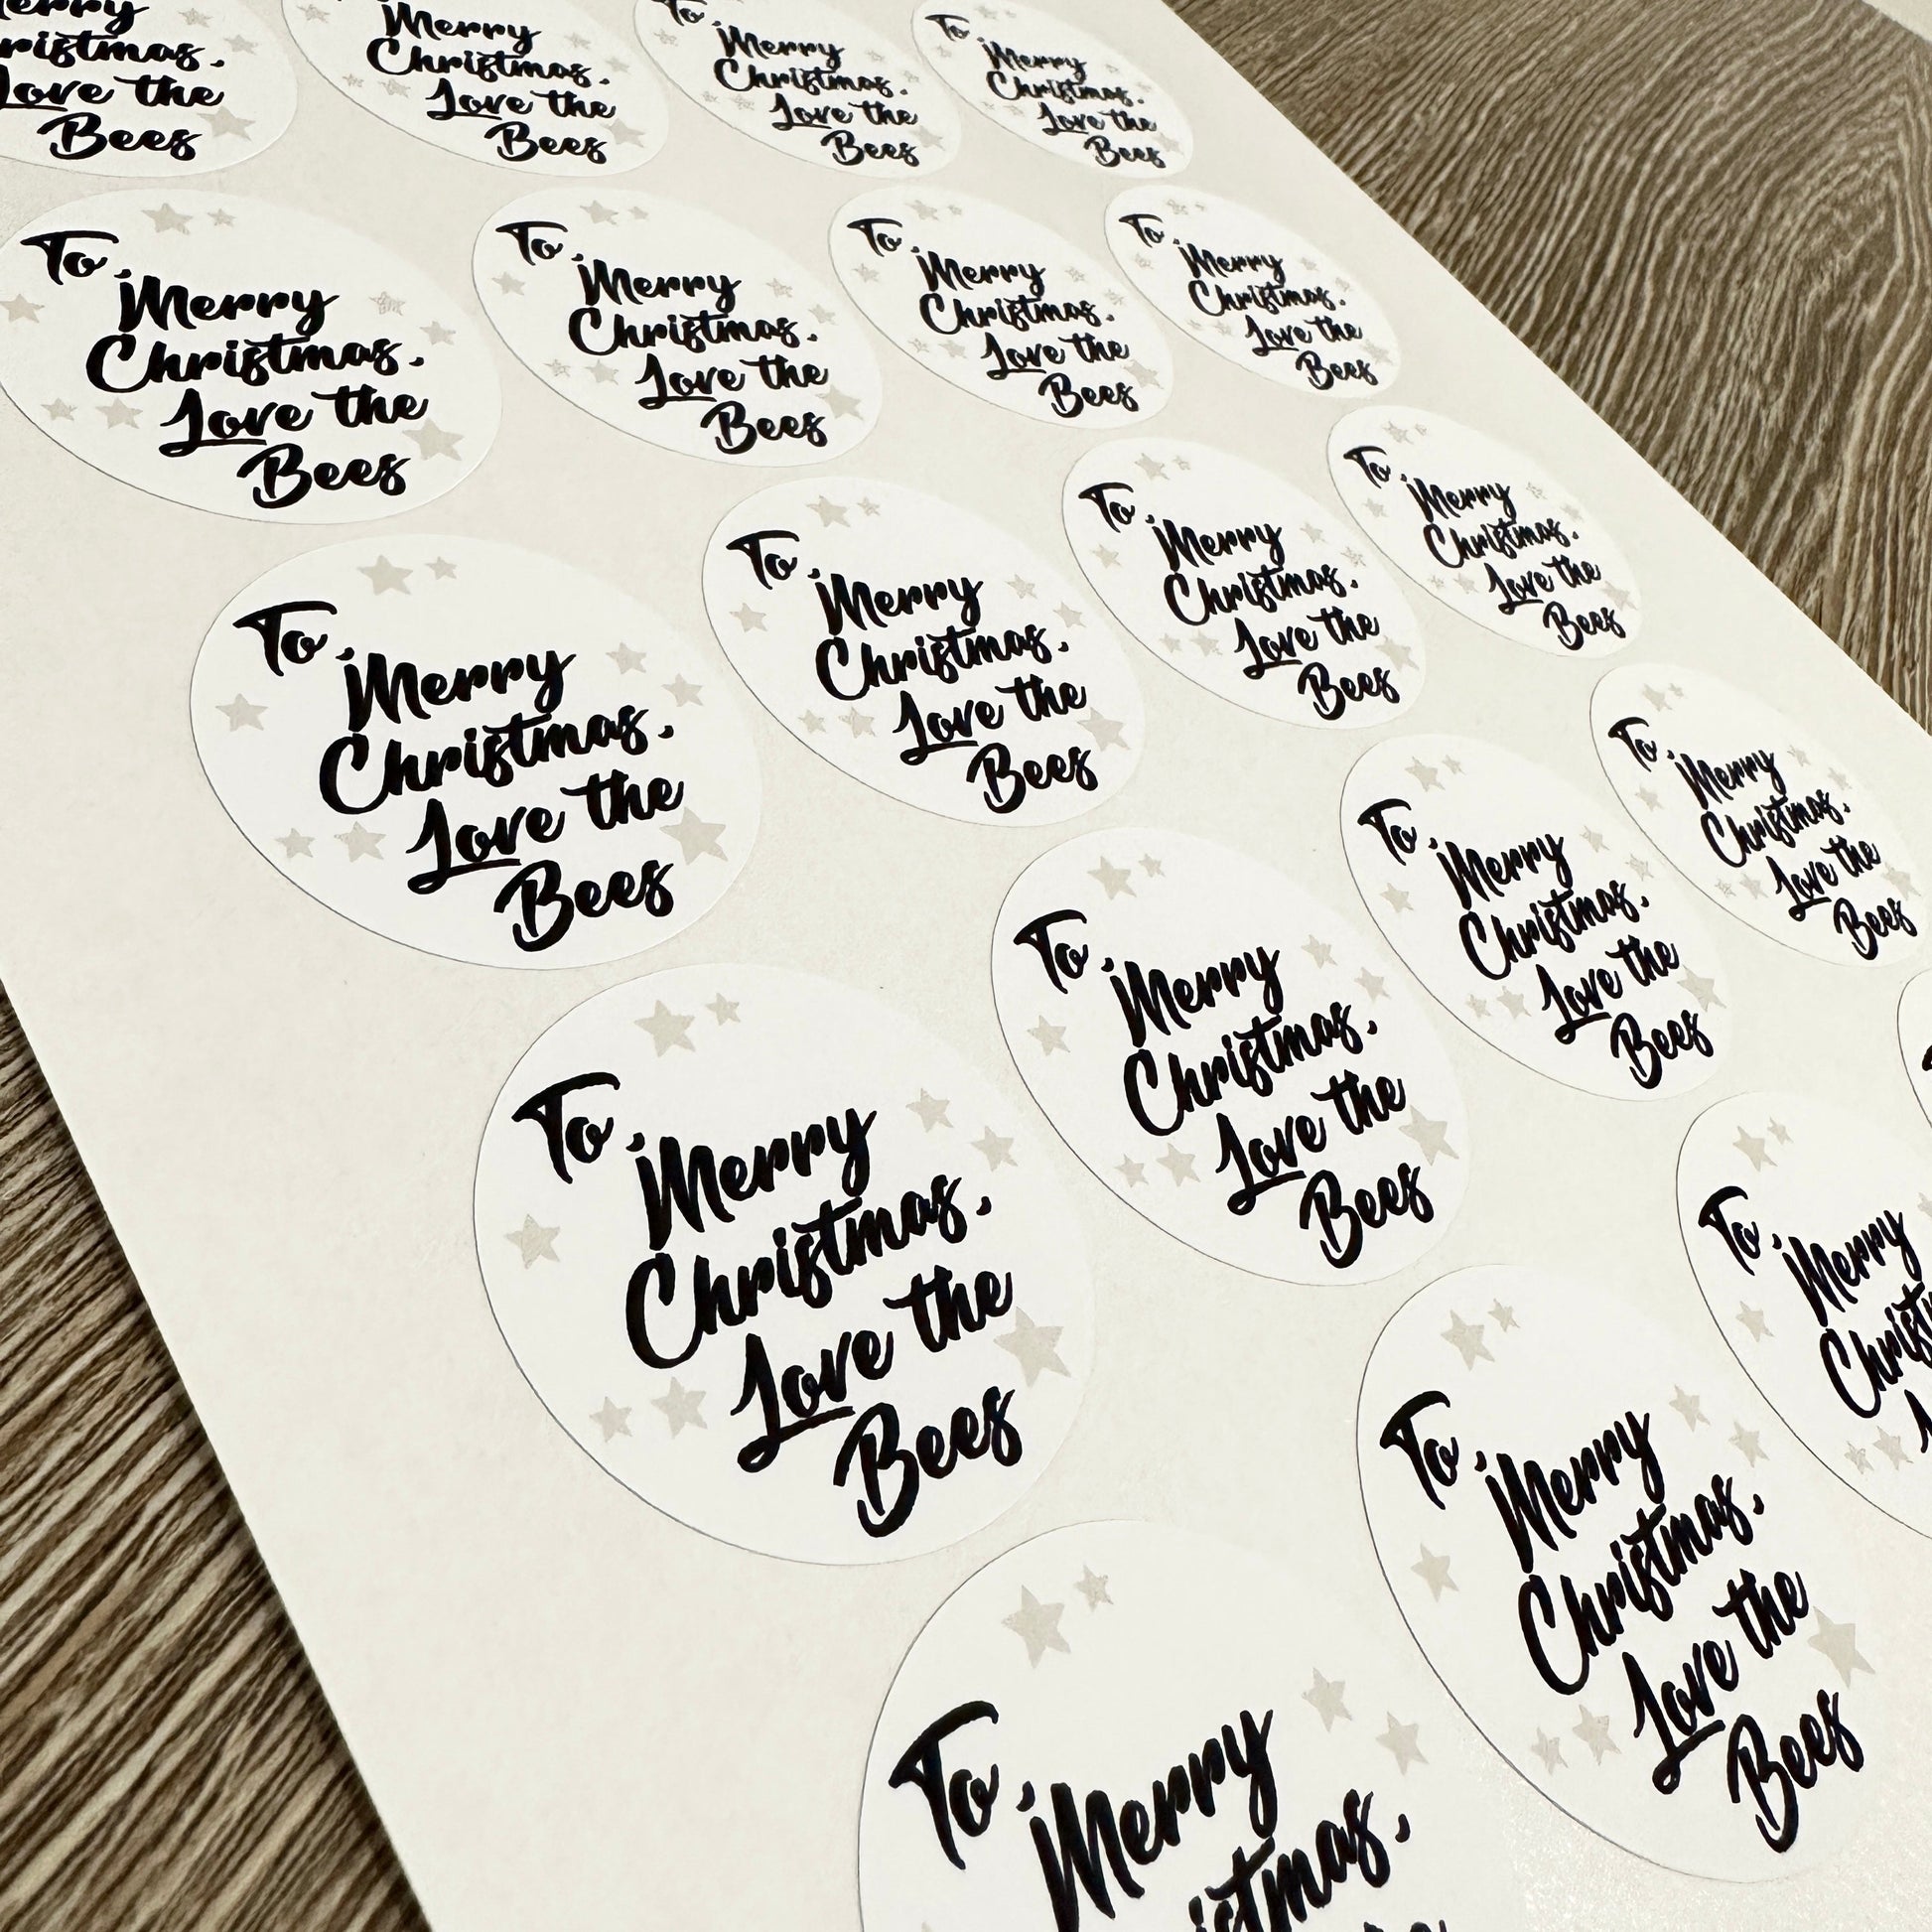 erry
ristmas,
Love the
Bees
Merry
Christmas,
Love the
Bees
To,
Merry
Christmas,
Love the
Bees
To,
Merry
Christmas,
Love the
Bees
To,
Merry
Christmas,
Love the
Bees
To,
Merry
Christmas,
Love the
Bees
To,
Merry
Christmas,
Love the
Bees
To,
Merry
Christmas,
Love the
Bees
To,
Merry
Christmas,
Love the
Bees
To,
Merry
Christmas,
Love the
Bees
To,
Merry
Christmas,
Love the
Bees
To,
Merry
Christmas,
Love the
Bees
To,
Merry
Christmas,
Love the
Bees
To,
Merry
Christmas,
Love the
Bees
To,
Merry
Christmas,
Love the
Bees
To,
Merry
Christmas,
Love the
Bees
To,
Merry
istmas,
To,
Merry
Christmas,
Love the
Bees
To,
Merry
Christ